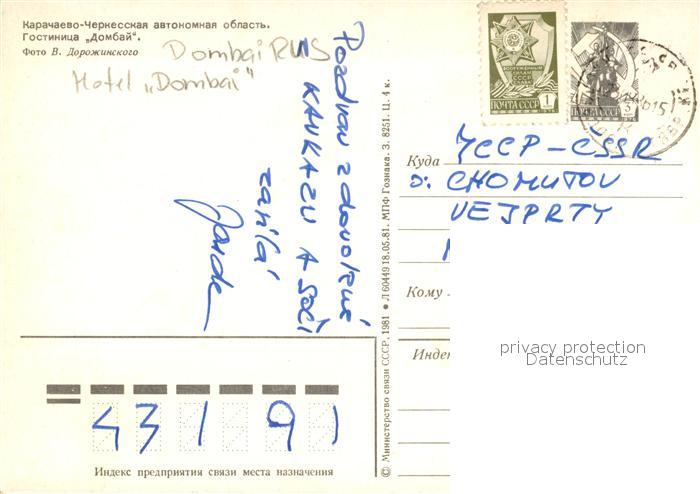 Карачаево-Черкесская автономная область.
Гостиница „Домбай“.
Фото В. Дорожинского
Dombai RUS
Hotel „Dombai“
Pozdrav z dovolené
KAVKAZU A Soči
zasílá
ПОЧТА СССР 1
5
© Министерство связи СССР, 1981 ● Л 60449 18.05.81. МПФ Гознака. З. 8251. Ц. 4 к.
Куда ЧССР - ČSSR
o. CHOMUTOV
VEJPRTY
Кому
Индек
privacy protection
Datenschutz
4 3 1 9 1
Индекс предприятия связи места назначения